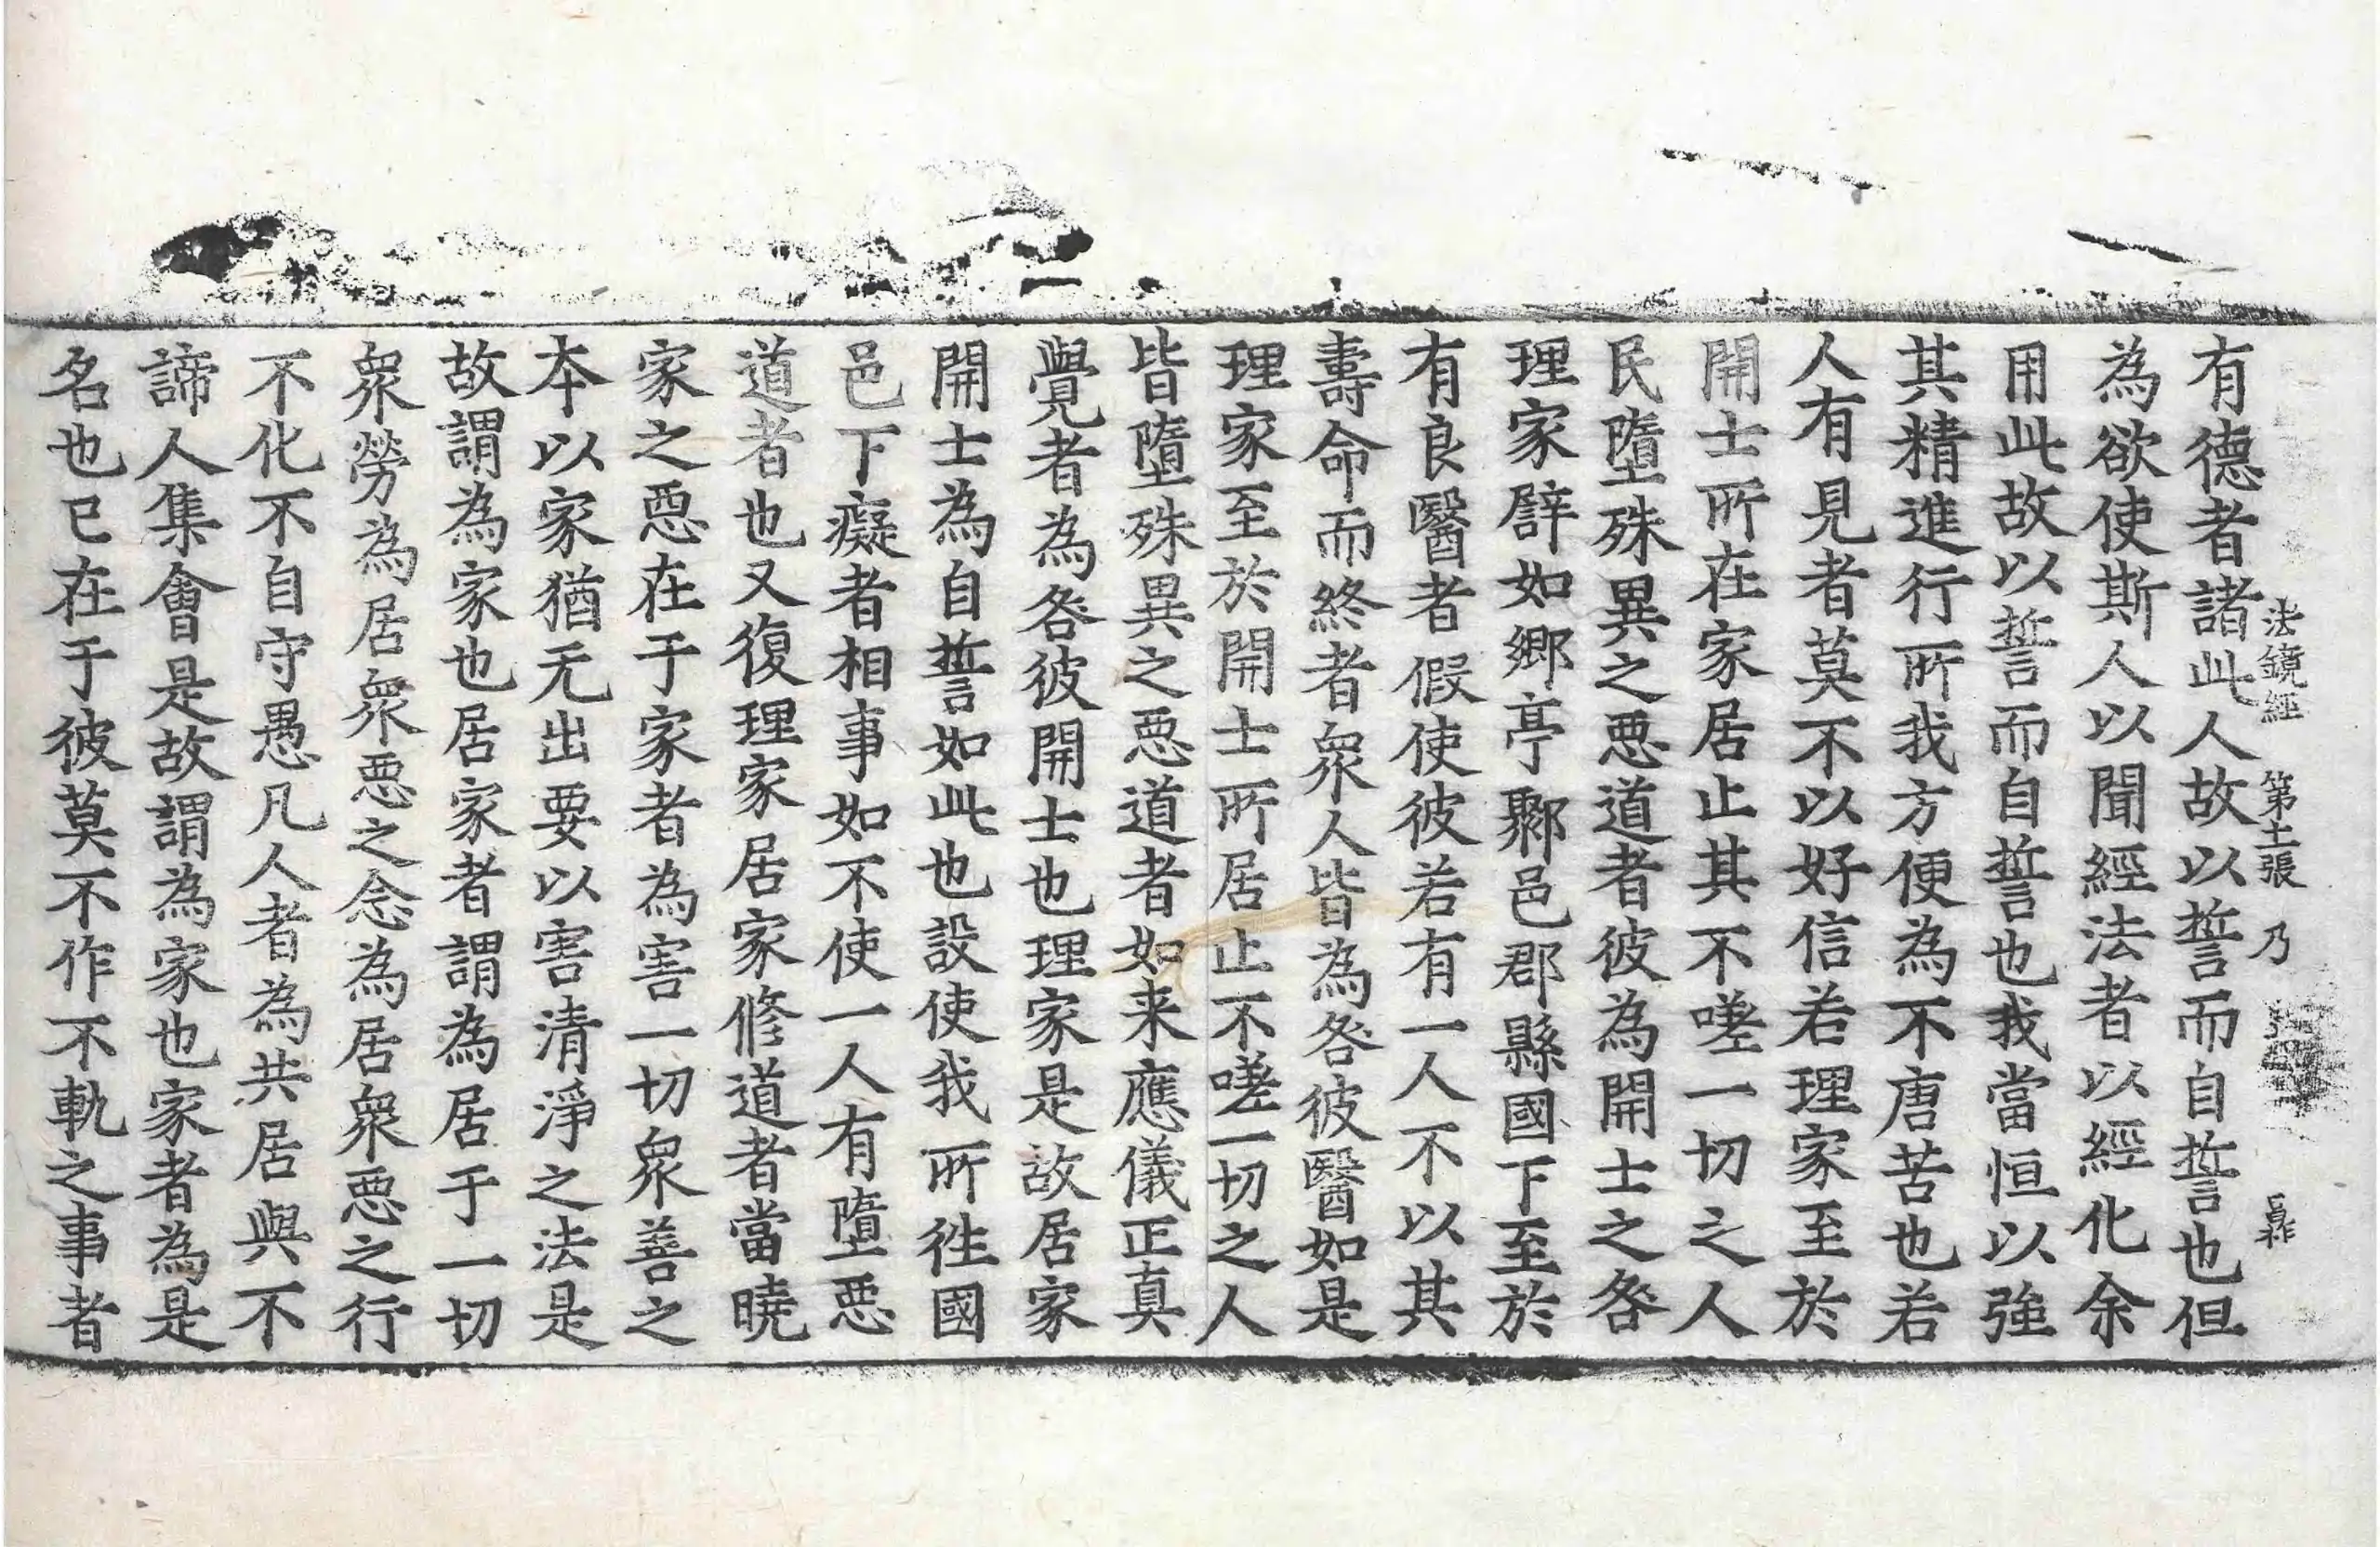 法鏡經 第十二張 乃
有德者諸此人故以誓而自誓也但
為欲使斯人以聞經法者以經化余
用此故以誓而自誓也我當恒以強
其精進行所我方便為不唐苦也若
人有見者莫不以好信若理家至於
開士所在家居止其不嗟一切之人
民墮殊異之惡道者彼為開士之咎
理家譬如鄉亭鄹邑郡縣國下至於
有良醫者假使彼若有一人不以其
壽命而終者衆人皆為咎彼醫如是
理家至於開士所居止不嗟一切之人
皆墮殊異之惡道者如来應儀正真
覺者為咎彼開士也理家是故居家
開士為自誓如此也設使我所徃國
邑下癡者相事如不使一人有墮惡
道者也又復理家居家修道者當曉
家之惡在于家者為害一切衆善之
本以家猶无出要以害清淨之法是
故謂為家也居家者謂為居于一切
衆勞為居衆惡之念為居衆惡之行
不化不自守愚凡人者為共居與不
諦人集會是故謂為家也家者為是
名也已在于彼莫不作不軌之事者